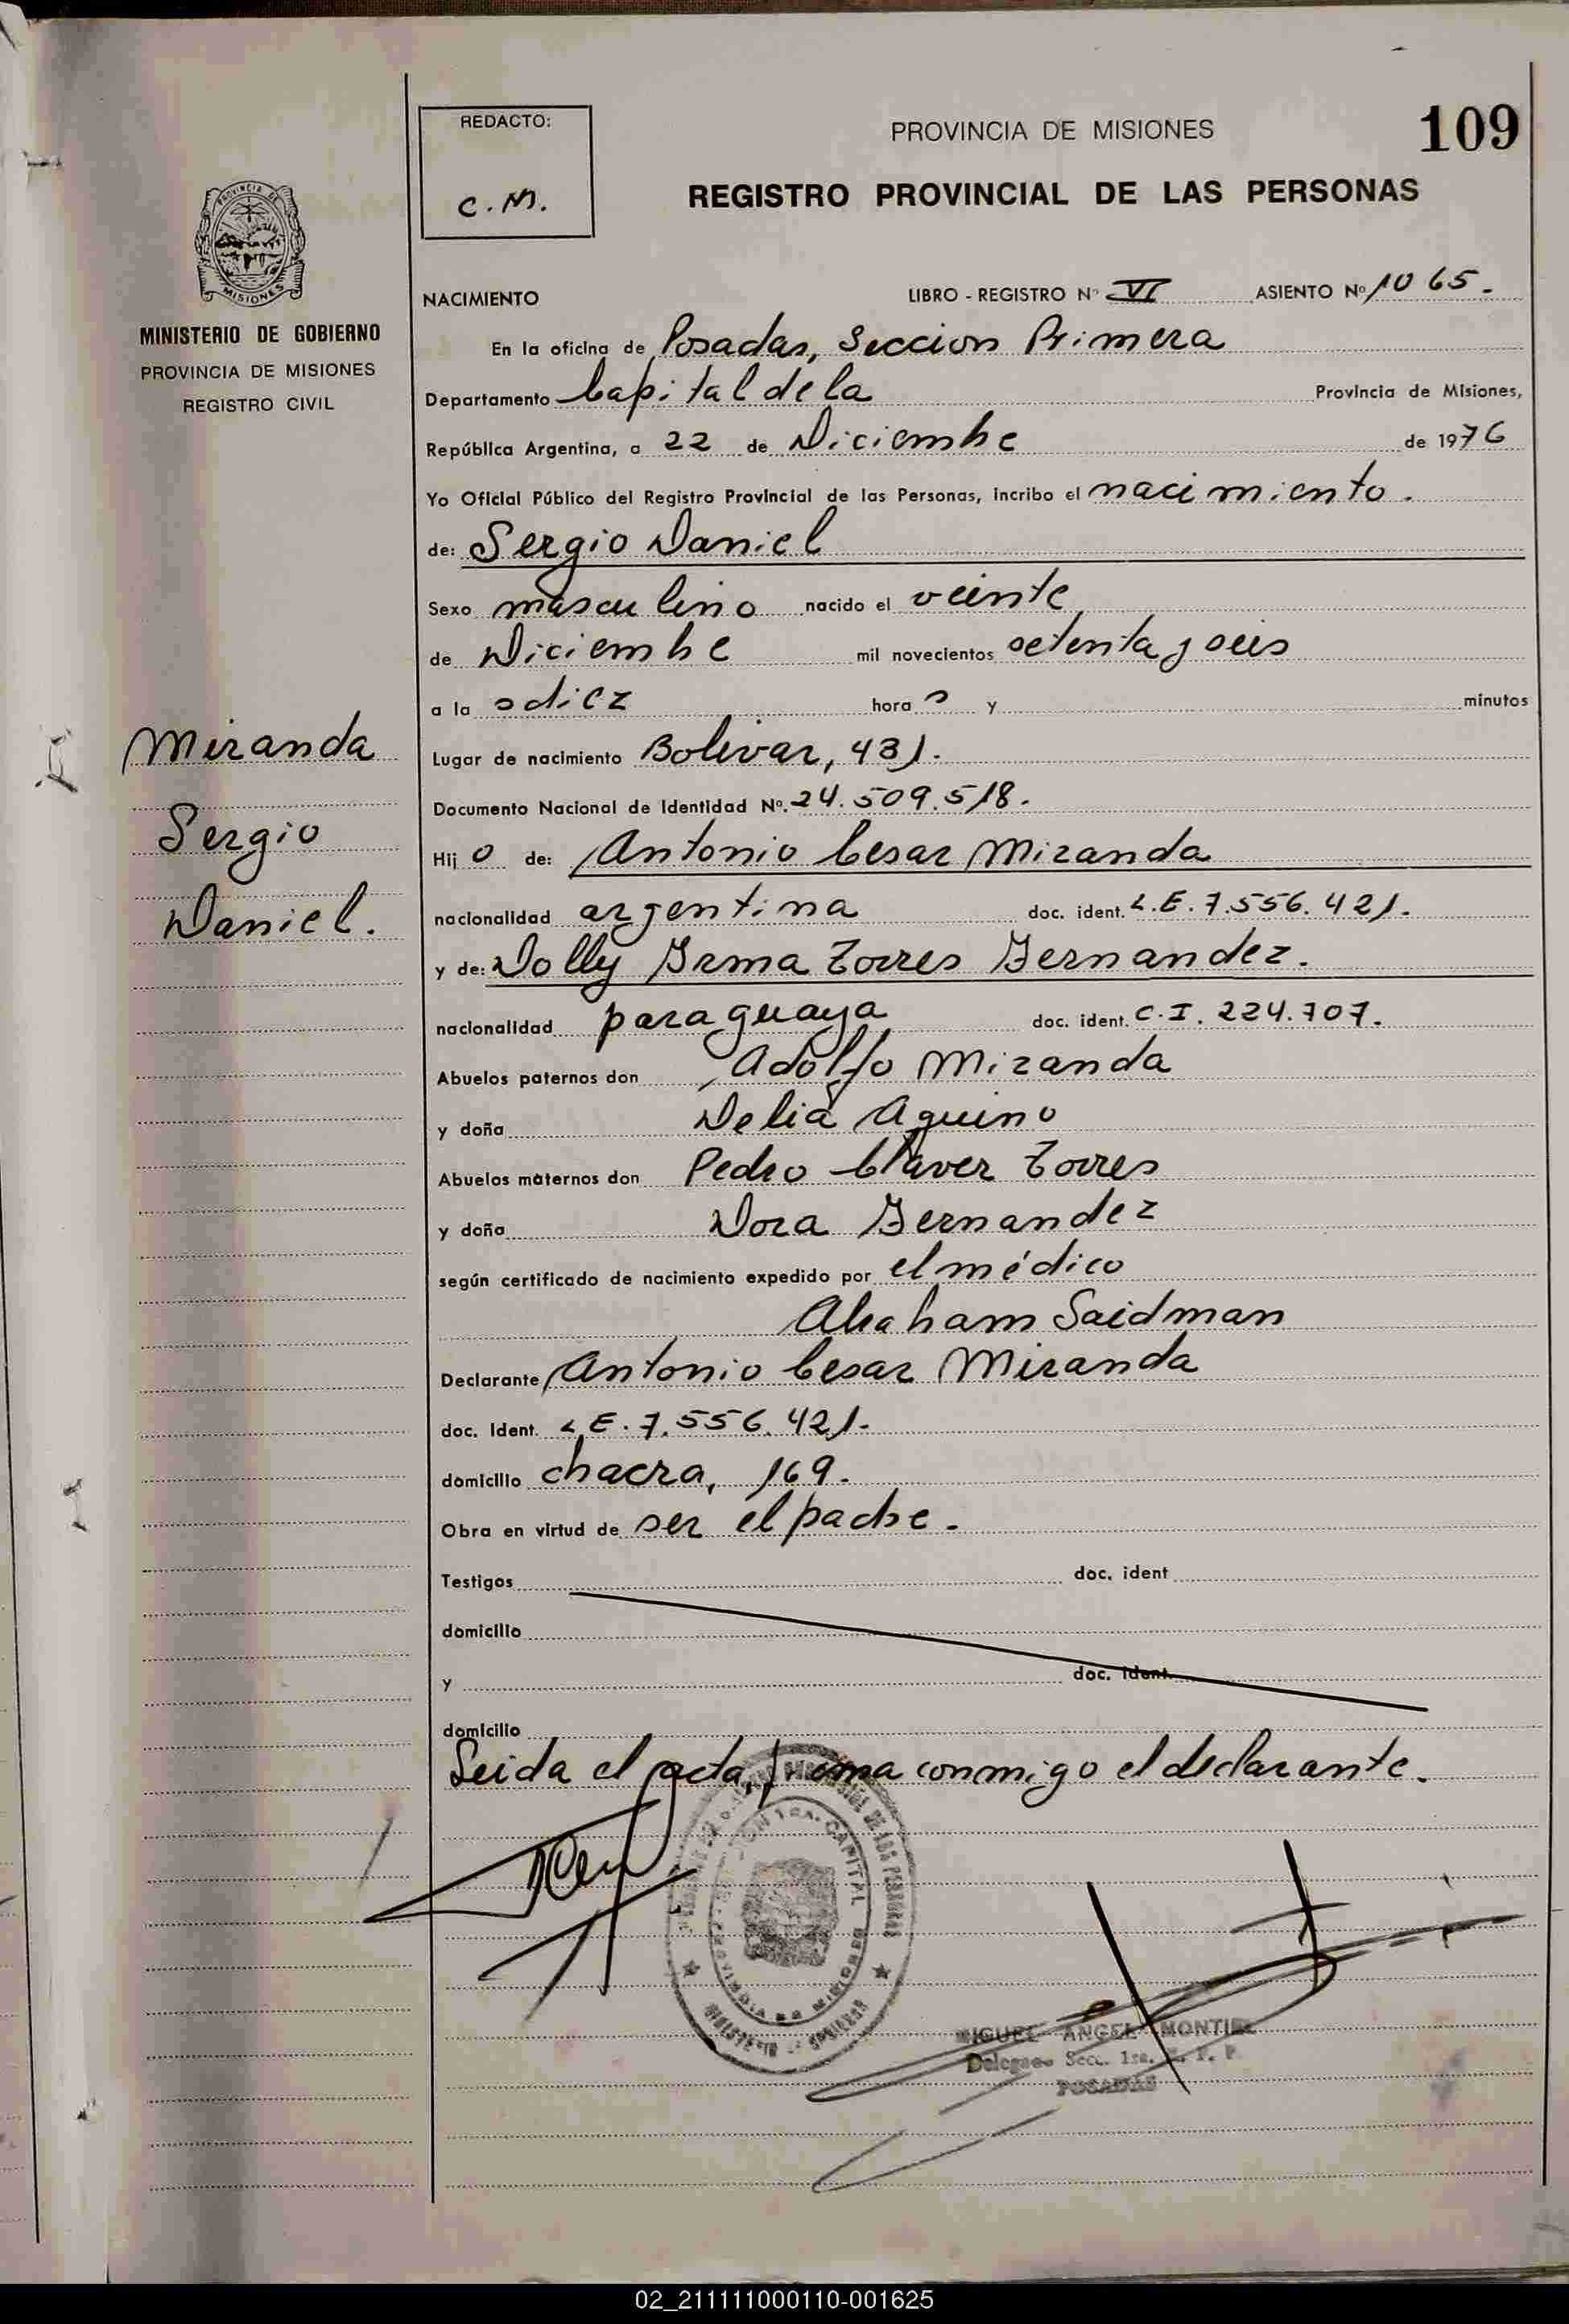 REDACTO:
C.M.
PROVINCIA DE MISIONES
109
REGISTRO PROVINCIAL DE LAS PERSONAS
PROVINCIA DE
MISIONES
MINISTERIO DE GOBIERNO
PROVINCIA DE MISIONES
REGISTRO CIVIL
NACIMIENTO LIBRO - REGISTRO Nº VI ASIENTO Nº 1065.
En la oficina de Posadas, Seccion Primera
Departamento Capital de la Provincia de Misiones,
República Argentina, a 22 de Diciembre de 1976
Yo Oficial Público del Registro Provincial de las Personas, incribo el nacimiento.
de: Sergio Daniel
Sexo masculino nacido el veinte
de Diciembre mil novecientos setenta y seis
a la s diez hora s y minutos
Miranda
Sergio
Daniel.
Lugar de nacimiento Bolivar, 431.
Documento Nacional de Identidad Nº. 24.509.518.
Hij o de: Antonio Cesar Miranda
nacionalidad argentina doc. ident. L.E. 7.556.421.
y de: Dolly Irma Torres Fernandez.
nacionalidad paraguaya doc. ident. C.I. 224.707.
Abuelos paternos don Adolfo Miranda
y doña Delia Aquino
Abuelos maternos don Pedro Claver Torres
y doña Dora Fernandez
según certificado de nacimiento expedido por el médico
Abraham Saidman
Declarante Antonio Cesar Miranda
doc. Ident. L.E. 7.556.421.
domicilio chacra, 169.
Obra en virtud de ser el padre.
Testigos doc. ident
domicilio
y doc. ident.
domicilio
Leida el acta, firma conmigo el declarante.
MIGUEL ANGEL MONTIEL
Secc. 1ra.
POSADAS
02_211111000110-001625